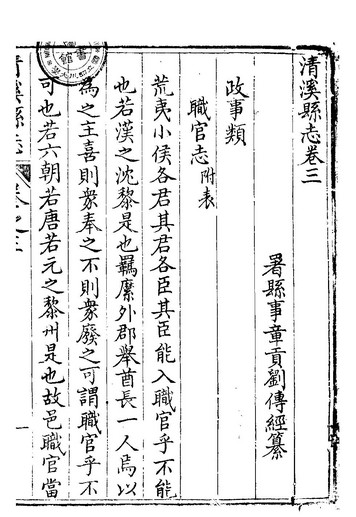 清溪縣志卷三
署縣事章貢劉傳經纂
政事類
職官志 附表
荒夷小侯各君其君各臣其臣能入職官乎不能
也若漢之沈黎是也羈縻外郡舉酋長一人焉以
為之主喜則衆奉之不則衆廢之可謂職官乎不
可也若六朝若唐若元之黎州是也故邑職官當
清溪縣志
卷之三
一